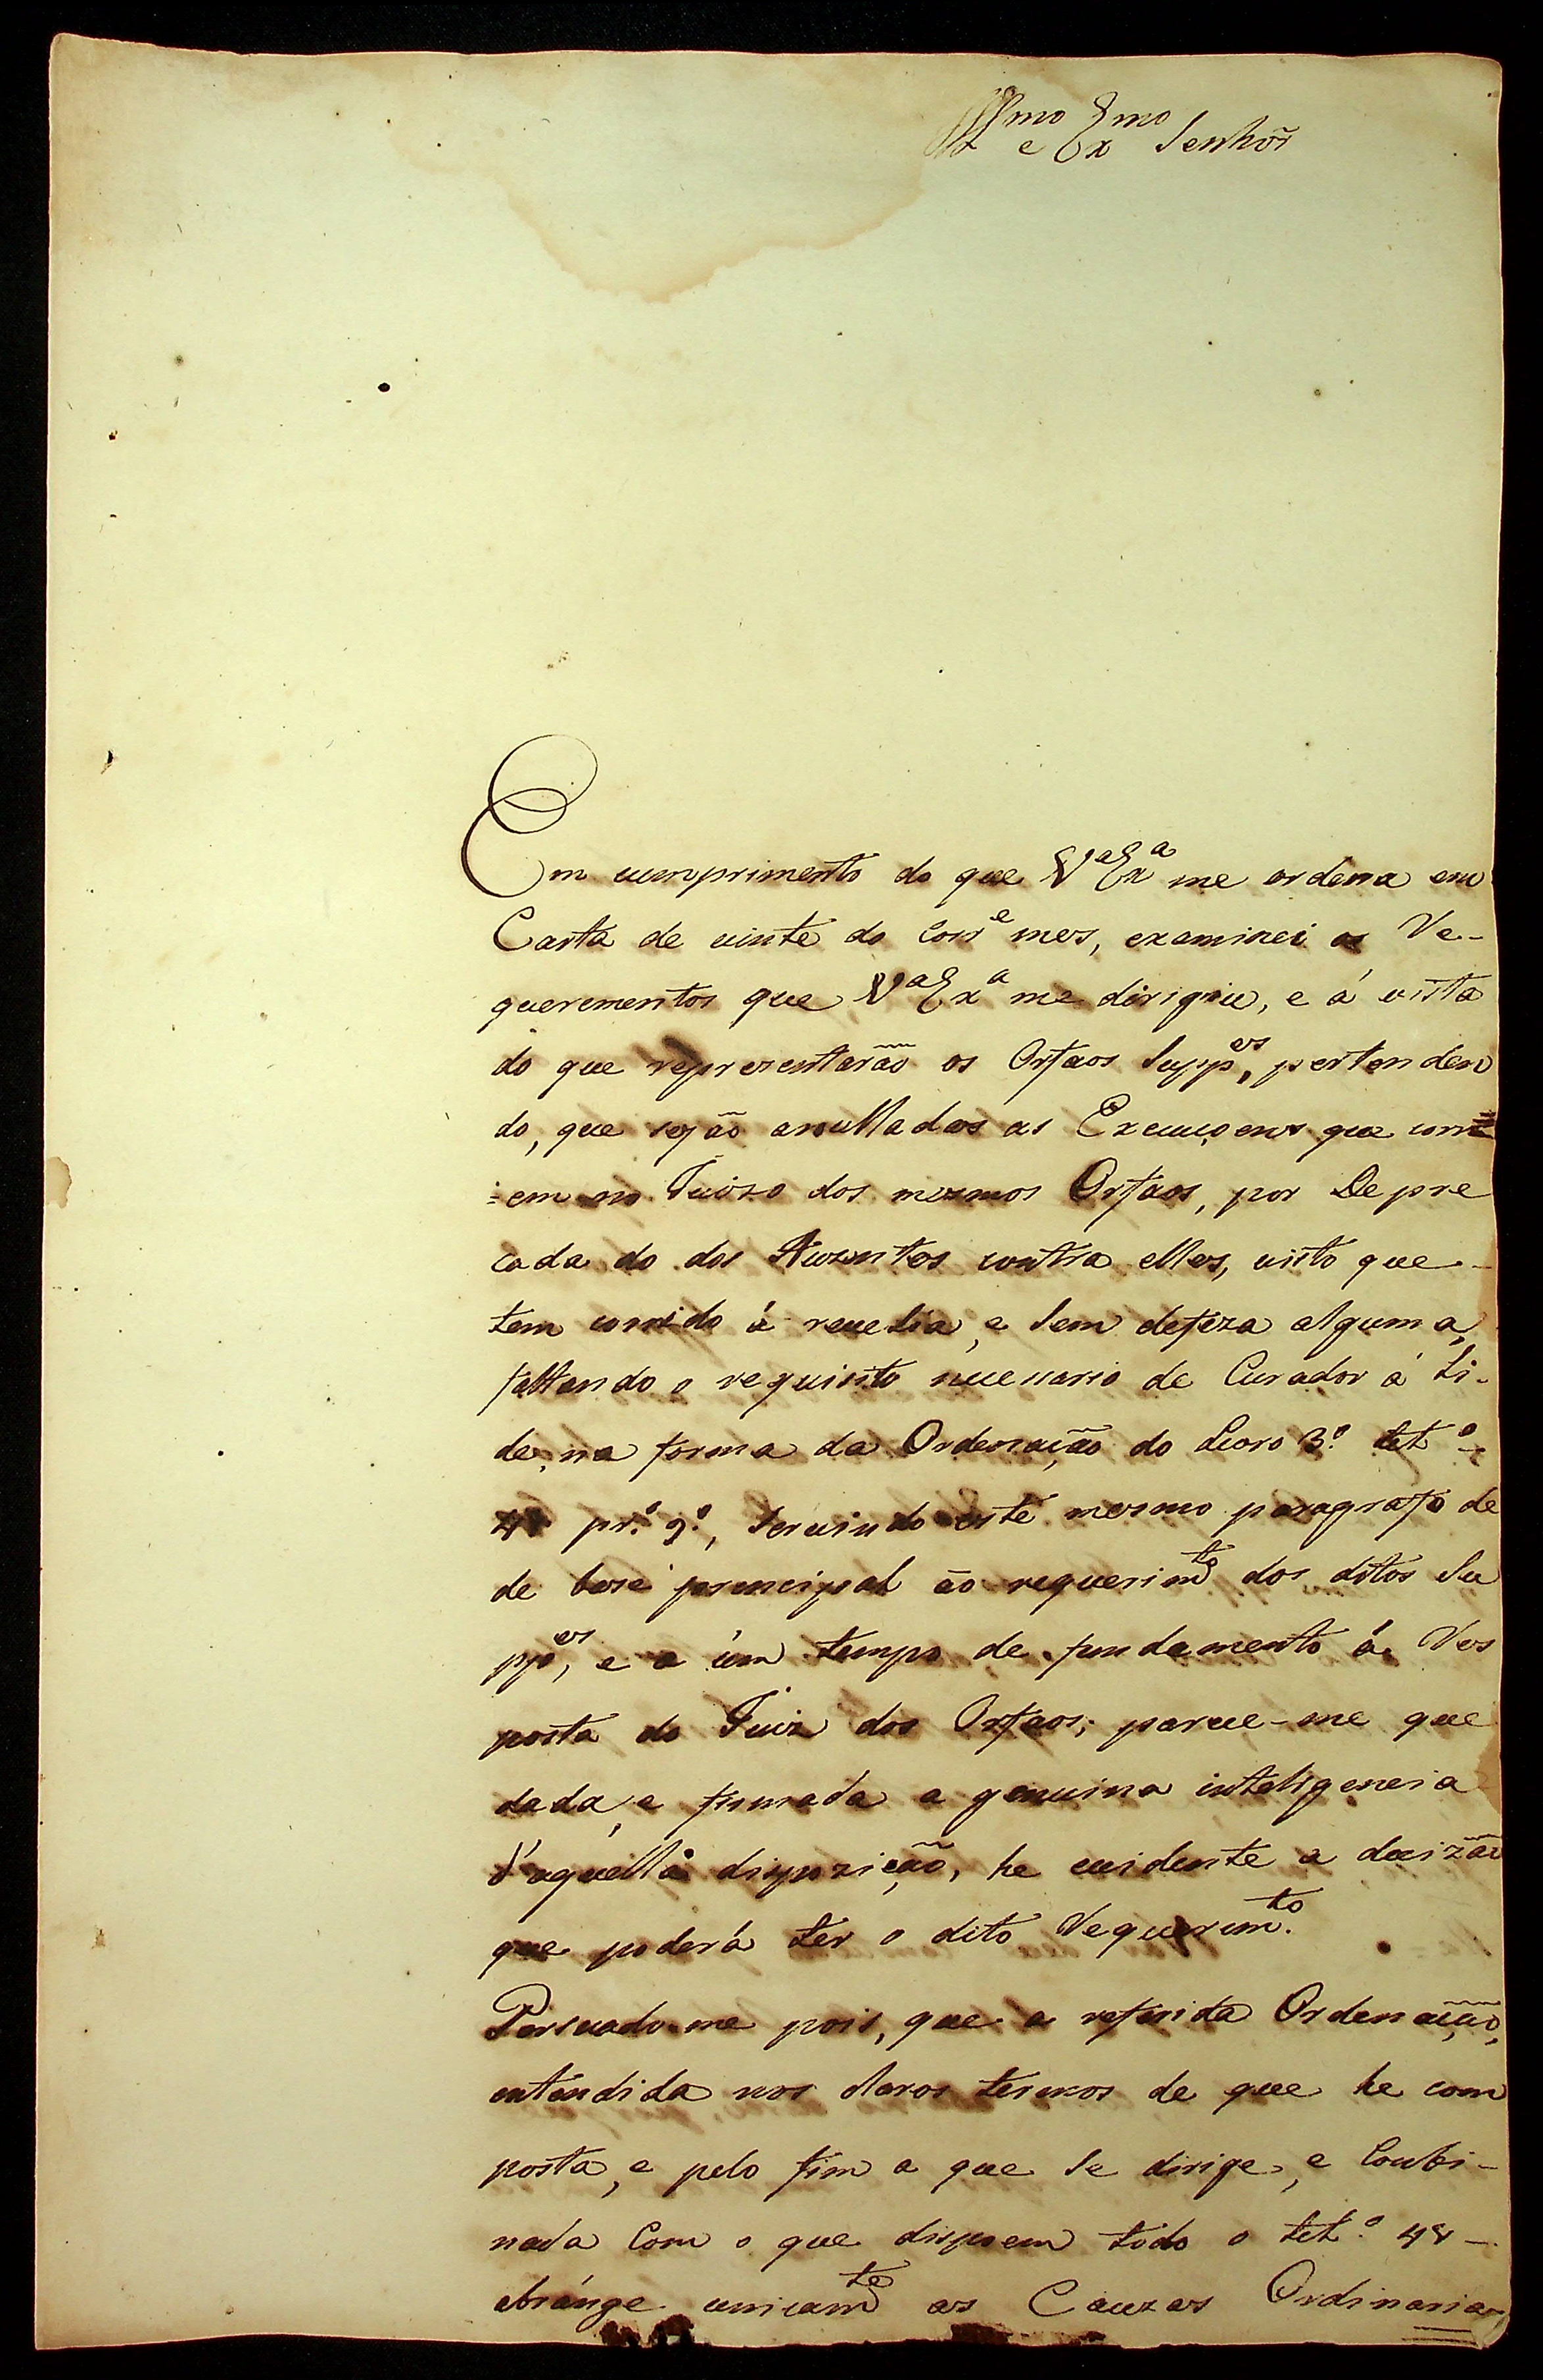 Illmo e Exmo Senhõr
Em cumprimento do que Va Exa me ordena em
Carta de vinte do Corre mes, examinei os Re-
querementos que Va Exa me dirigiu, e á vista
do que representarão os Orfaos Suppes, pertenden
do, que sejão anulladas as Execuçoens que corr=
=em no Juizo dos mesmos Orfaos, por Depre
cada do dos Auzentes contra elles, visto que
tem corrido á revelia, e Sem defeza alguma,
faltando o requisito necessario de Curador á Li-
de, na forma da Ordenação do Livro 3.º tet.º
pr.º 9.º, Servindo este mesmo paragrafo de
de base principal ao requerimto dos ditos Su
ppes, e a úm tempo de fundamento á Res
posta do Juiz dos Orfaos; parece-me que
dada, e firmada a genuina inteligencia
d'aquella dispozição, he evidente a decizão
que poderá ter o dito Requerimto.
Persuado-me pois, que a referida Ordenação,
entendida nos claros termos de que he com
posta, e pelo fim a que Se dirige, e Conbi-
nada Com o que dispoem todo o tet.º 41-
abránge unicamte as Cauzas Ordinarias